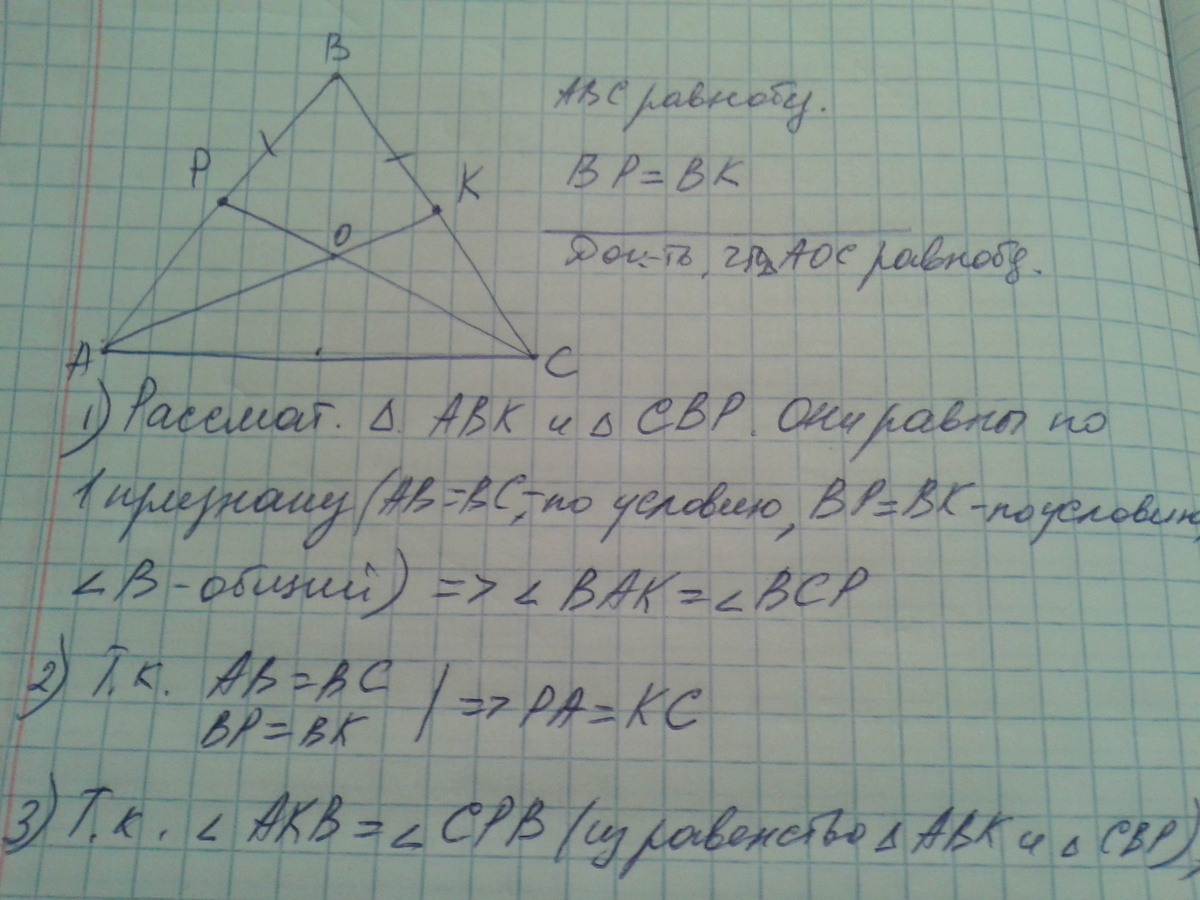 B
ABC равнобу.
P
BP = BK
K
O
Док-ть, что △AOC равнобу.
A
C
1) Рассмат. △. ABK и △ CBP. Они равны по
1 признаку (AB=BC,-по условию, BP=BK-по условию,
∠B-общий) => ∠BAK=∠BCP
2) Т.к. AB=BC
BP=BK | => PA=KC
3) Т.к. ∠AKB=∠CPB (из равенство △ABK и △CBP),